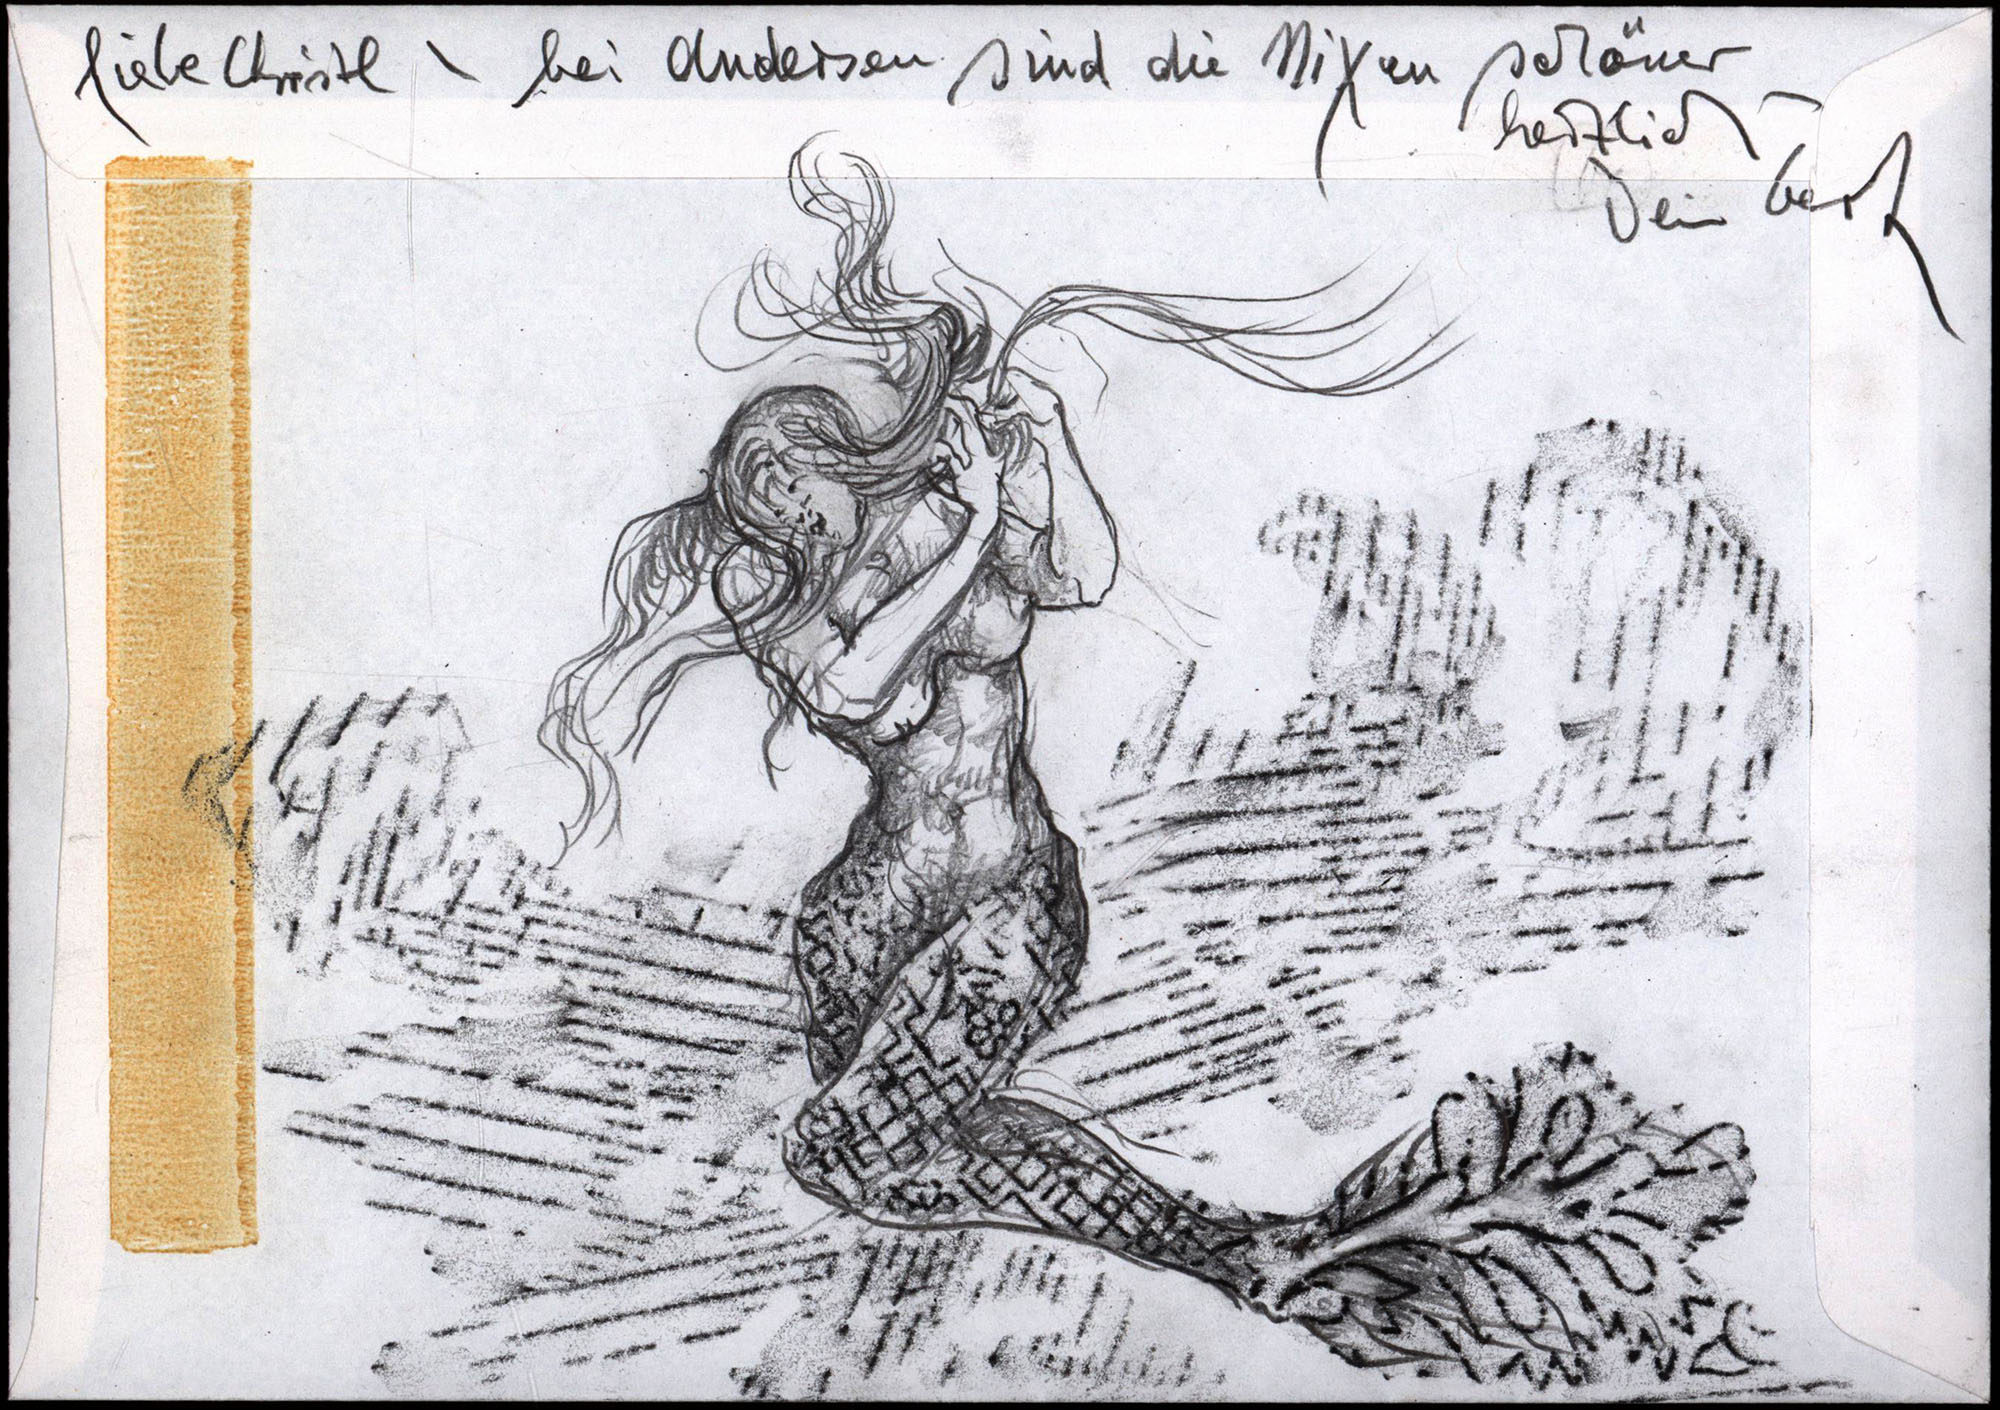 liebe Christl – bei Andersen sind die Nixen schöner
herzlich –
Dein Gertz